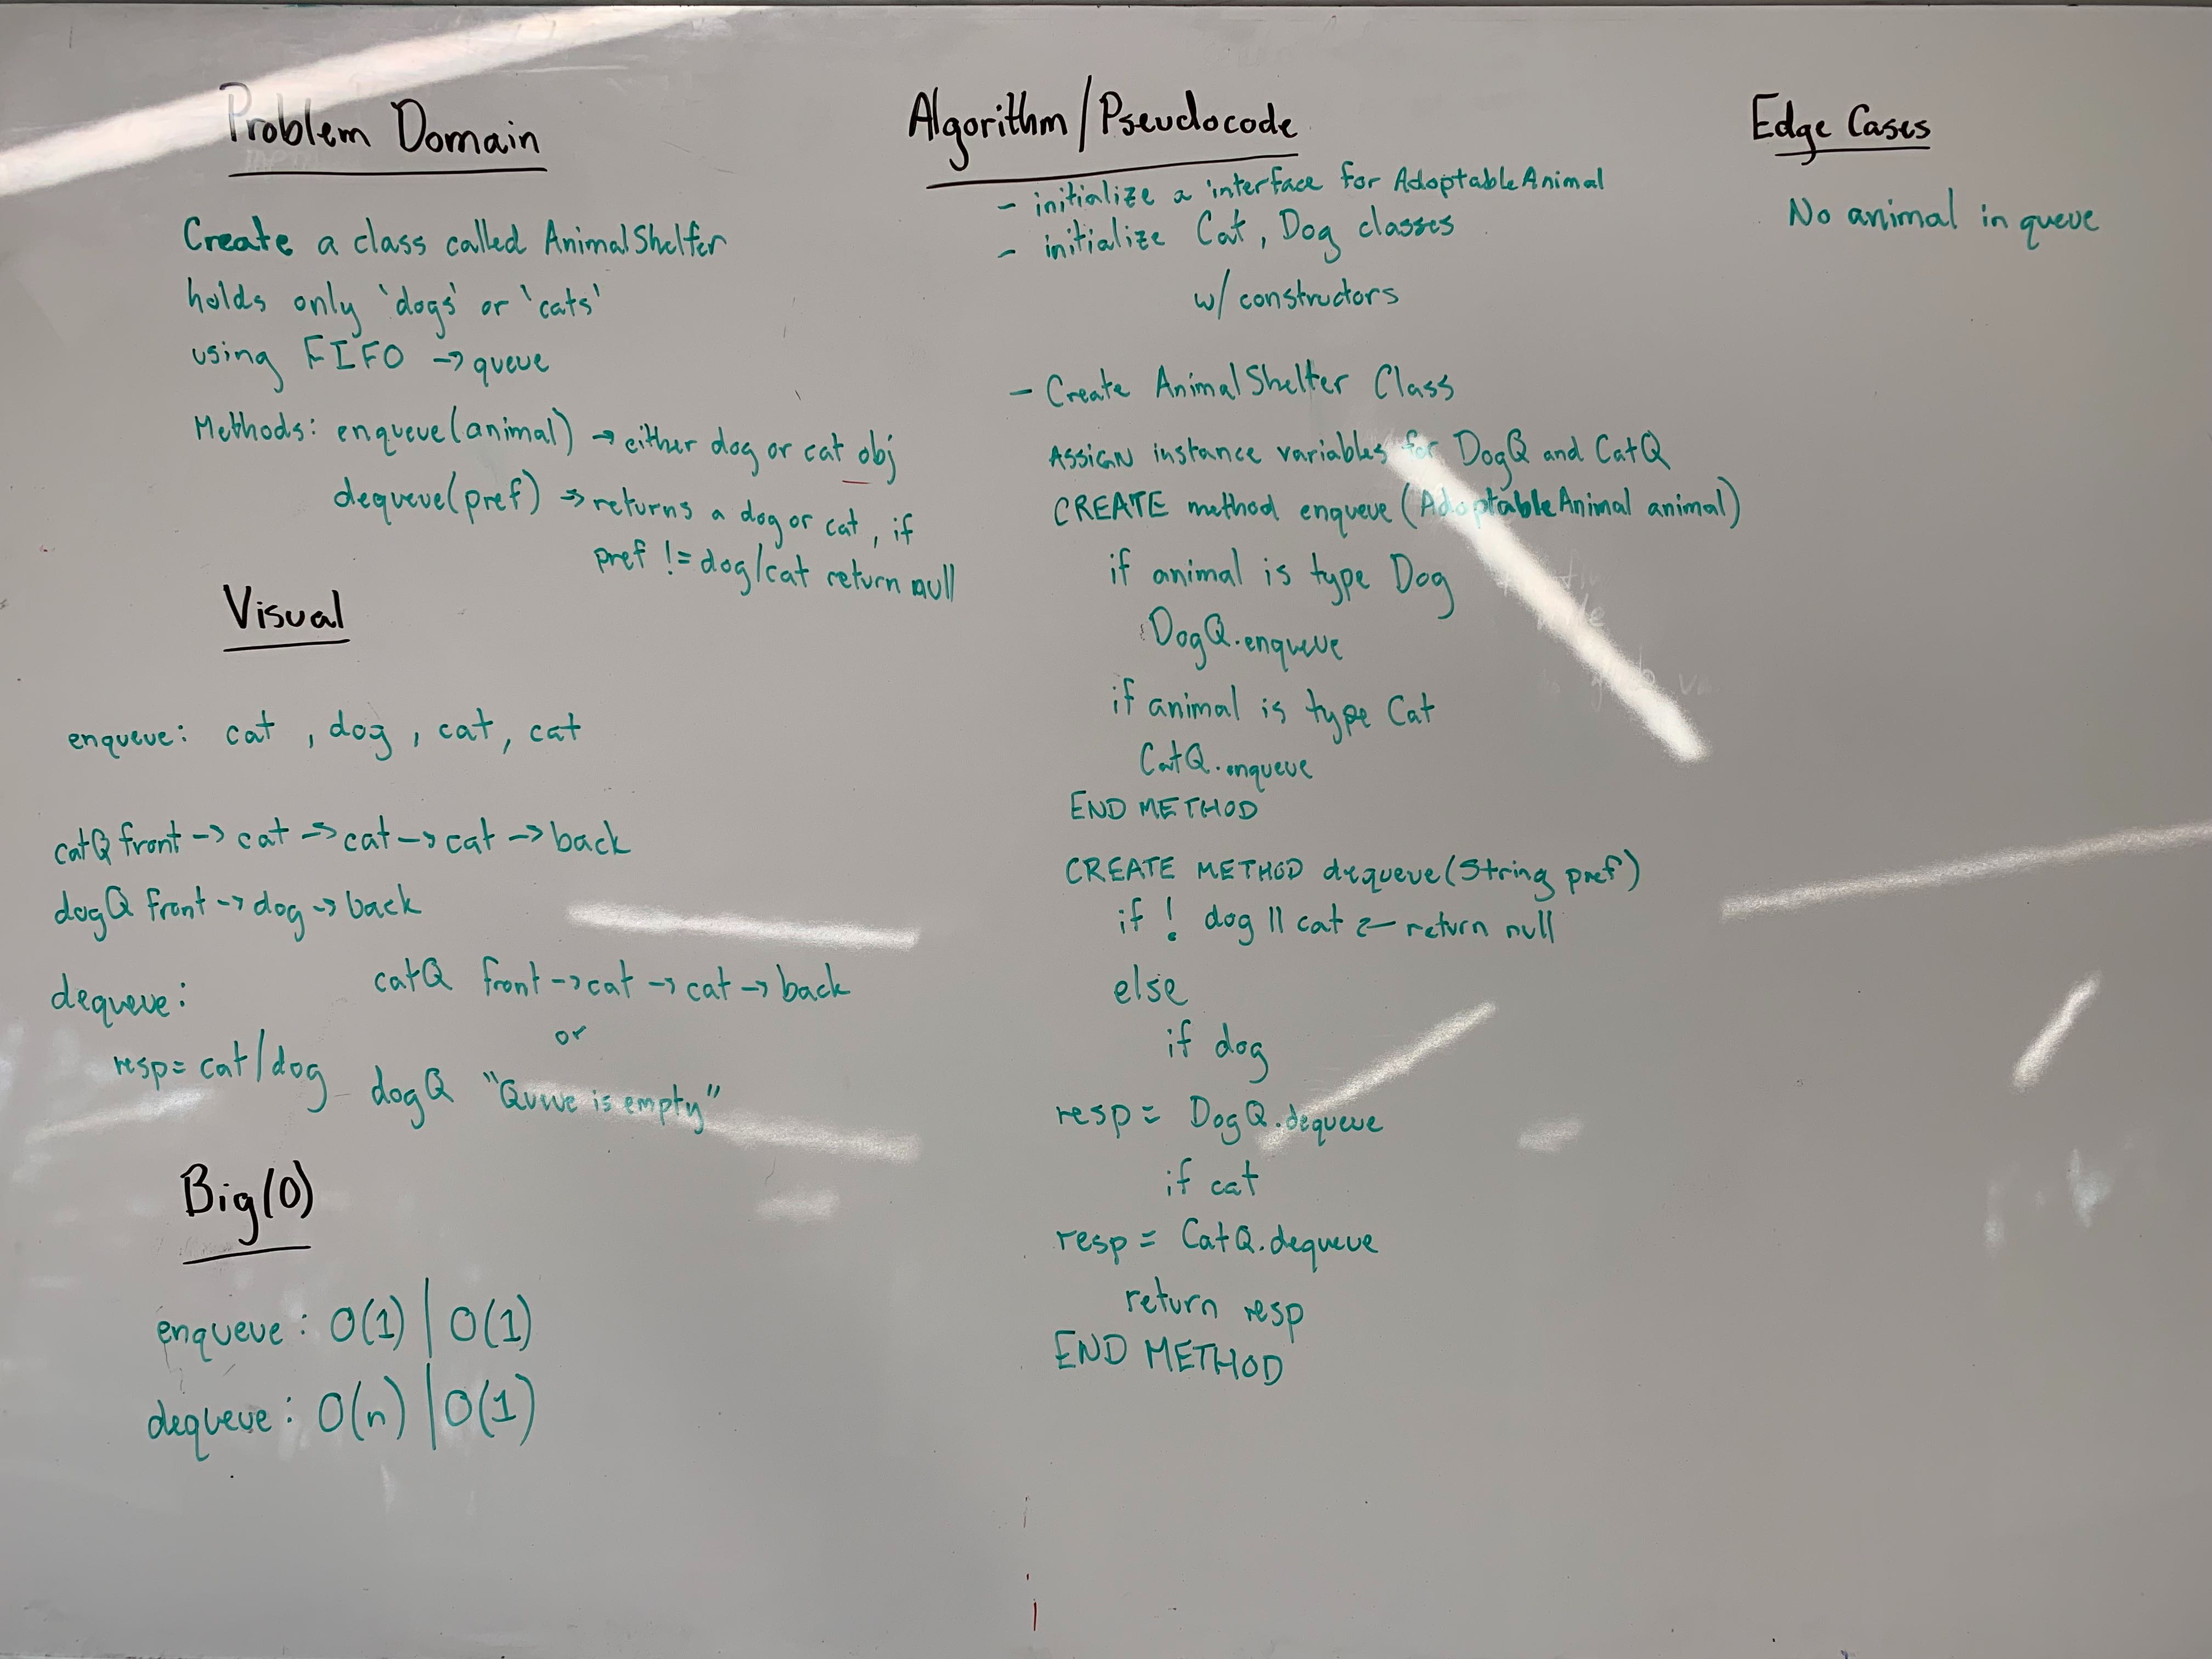 Problem Domain
Create a class called AnimalShelter
holds only 'dogs' or 'cats'
using FIFO → queue
Methods: enqueue(animal) → either dog or cat obj
dequeue(pref) → returns a dog or cat, if
pref != dog/cat return null
Visual
enqueue: cat, dog, cat, cat
catQ front → cat → cat → cat → back
dogQ front → dog → back
dequeue: catQ front → cat → cat → back
or
resp = cat/dog dogQ "Queue is empty"
Big(O)
enqueue: O(1) | O(1)
dequeue: O(n) | O(1)
Algorithm/Pseudocode
- initialize a interface for AdoptableAnimal
- initialize Cat, Dog classes
w/ constructors
- Create AnimalShelter Class
ASSIGN instance variables for DogQ and CatQ
CREATE method enqueue(AdoptableAnimal animal)
if animal is type Dog
DogQ.enqueue
if animal is type Cat
CatQ.enqueue
END METHOD
CREATE METHOD dequeue(String pref)
if ! dog || cat ← return null
else
if dog
resp = DogQ.dequeue
if cat
resp = CatQ.dequeue
return resp
END METHOD
Edge Cases
No animal in queue